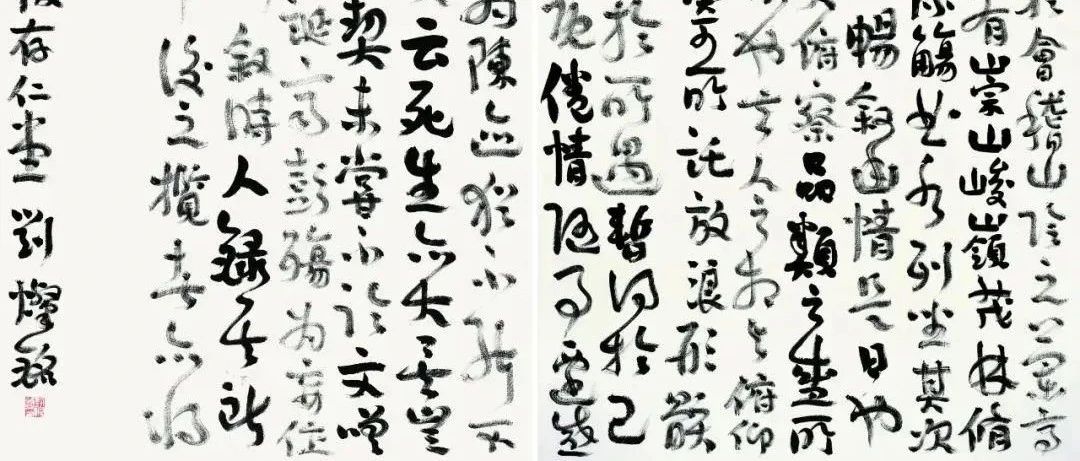 於會稽山陰之蘭亭
有崇山峻嶺茂林脩
流觴曲水列坐其次
暢敘幽情是日也
俯察品類之盛所
也夫人之相與俯仰
寄所託放浪形骸
於所遇暫得於己
倦情隨事遷感
為陳迹猶不能不
云死生亦大矣豈
契未嘗不臨文嗟
誕齊彭殤為妄作
敘時人錄其所
後之攬者亦將
存仁堂 劉燦銘